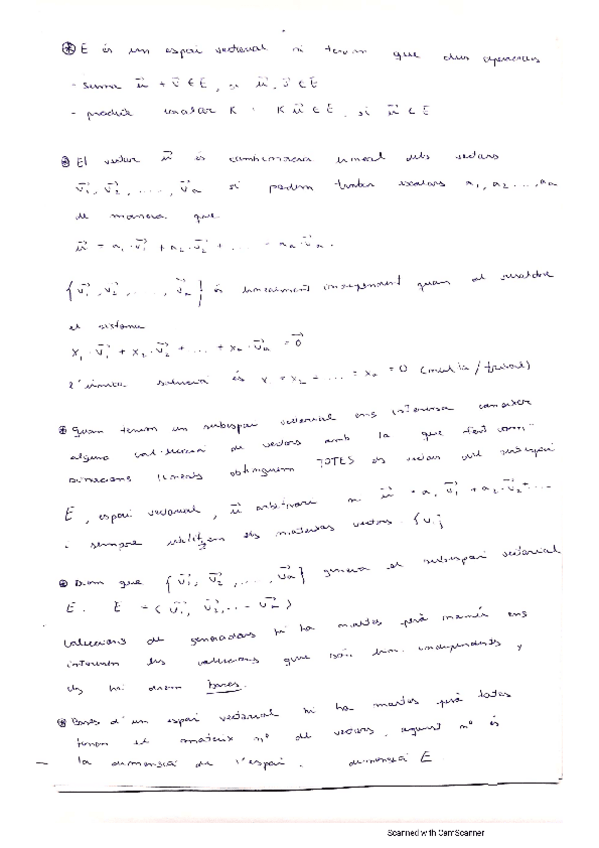 ⊛ E és un espai vectorial si tenim que dues operacions
- suma u⃗ + v⃗ ∈ E, si u⃗, v⃗ ∈ E
- producte escalar K · K u⃗ ∈ E, si u⃗ ∈ E
⊛ El vector u⃗ és combinació lineal dels vectors
v⃗1, v⃗2, ..., v⃗n si podem trobar escalars a1, a2 ..., an
de manera que
u⃗ = a1 · v⃗1 + a2 · v⃗2 + ... + an · v⃗n.
{v⃗1, v⃗2, ..., v⃗n} és linealment independent quan al resoldre
el sistema
x1 · v⃗1 + x2 · v⃗2 + ... + xn · v⃗n = 0⃗
l'única solució és x1 = x2 = ... = xn = 0 (nul·la / trivial)
⊛ Quan tenim un subespai vectorial ens interessa conèixer
alguna col·lecció de vectors amb la que fent com-
binacions lineals obtinguem TOTES els vectors del subespai
E, espai vectorial, u⃗ arbitrari si u⃗ = a1 v⃗1 + a2 · v⃗2 + ...
i sempre utilitzem els mateixos vectors. {vi}
⊛ Diem que {v⃗1, v⃗2, ..., v⃗n} genera el subespai vectorial
E. E = < v⃗1, v⃗2, ... v⃗n >
Col·leccions de generadors hi ha moltes però només ens
interessen les col·leccions que són lin. independents y
els hi diem bases.
⊛ Bases d'un espai vectorial hi ha moltes però totes
tenen el mateix nº de vectors, aquest nº és
la dimensió de l'espai. dimensió E
Scanned with CamScanner